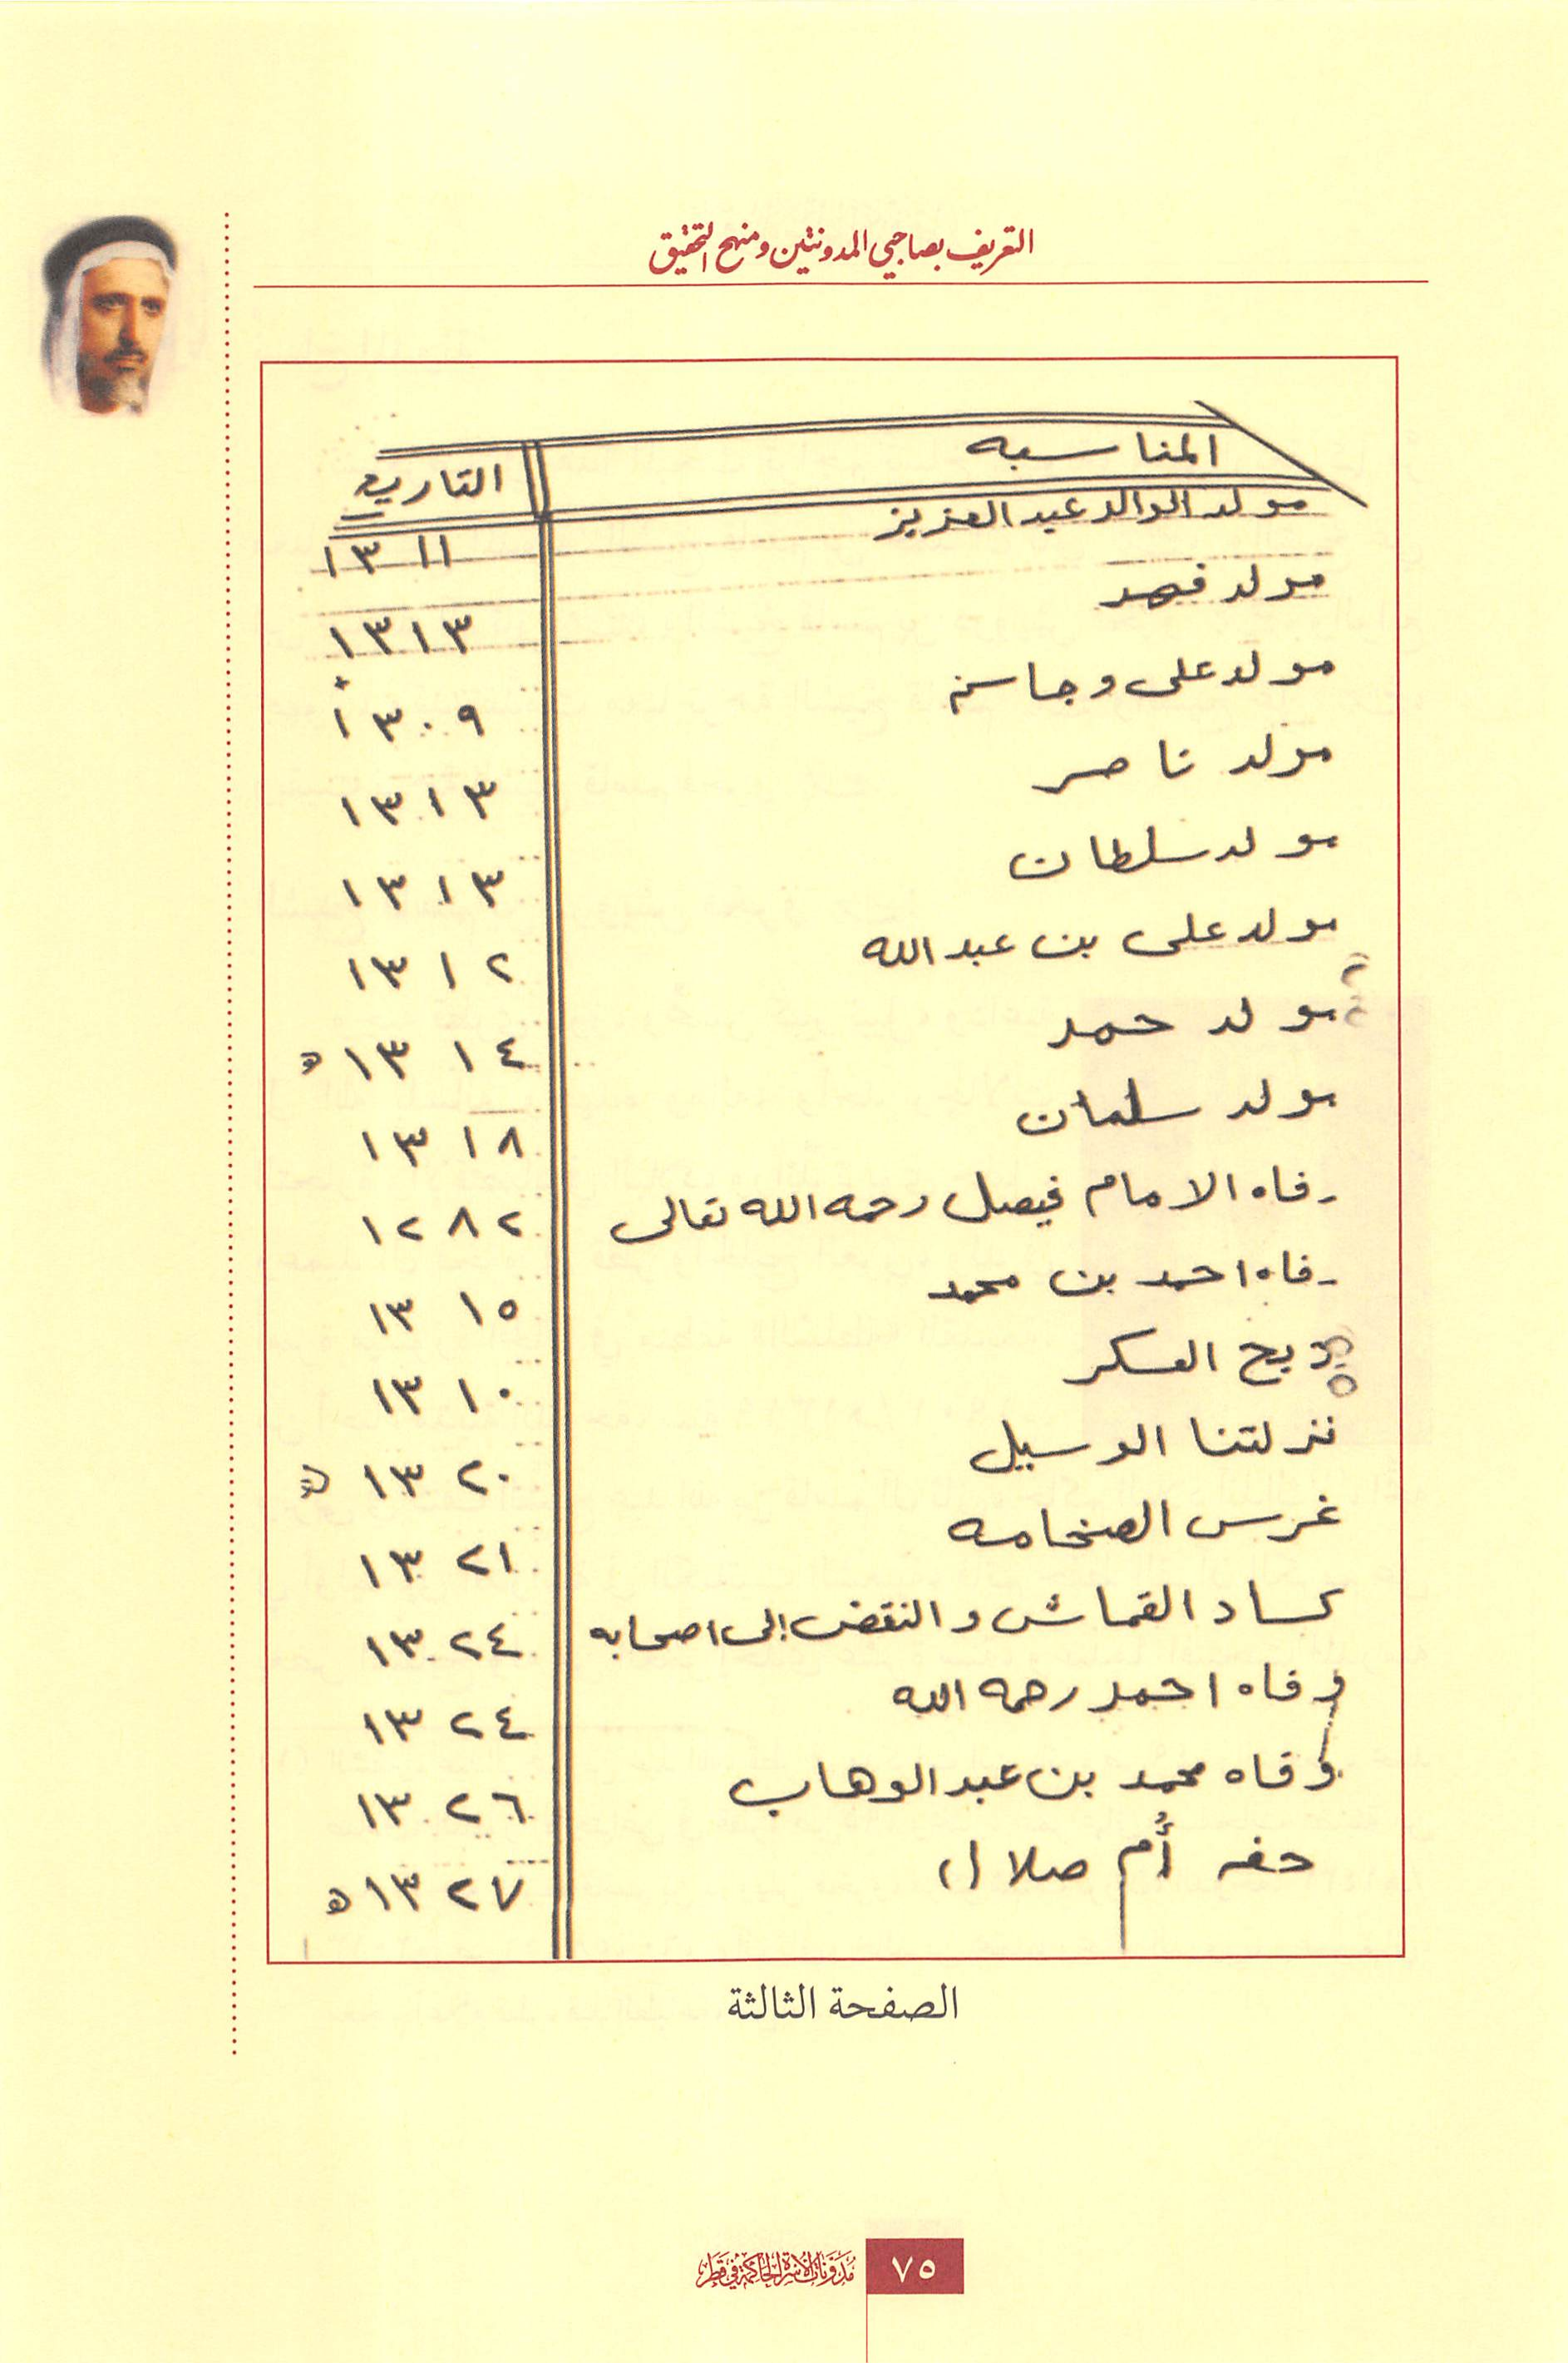 التعريف بصاحبي المدونتين ومنهج التحقيق
المناسبه التاريخ
مولد الوالد عبد العزيز ١٣١١
مولد فهد ١٣١٣
مولد على وجاسم ١٣٠٩
مولد ناصر ١٣١٣
مولد سلطان ١٣١٣
مولد على بن عبد الله ١٣١٢
مولد حمد ١٣١٤ ه
مولد سلمان ١٣١٨
وفاه الامام فيصل رحمه الله تعالى ١٢٨٢
وفاه احمد بن محمد ١٣١٥
ذبح العسكر ١٣١٠
نزلتنا الوسيل ١٣٢٠ ه
غرس الصخامه ١٣٢١
كساد القماش والنقض إلى اصحابه ١٣٢٤
وفاه احمد رحمه الله ١٣٢٤
وفاه محمد بن عبد الوهاب ١٣٢٦
حفر أم صلال ١٣٢٧ ه
الصفحة الثالثة
٧٥ مدونات الأسرة الحاكمة في قطر